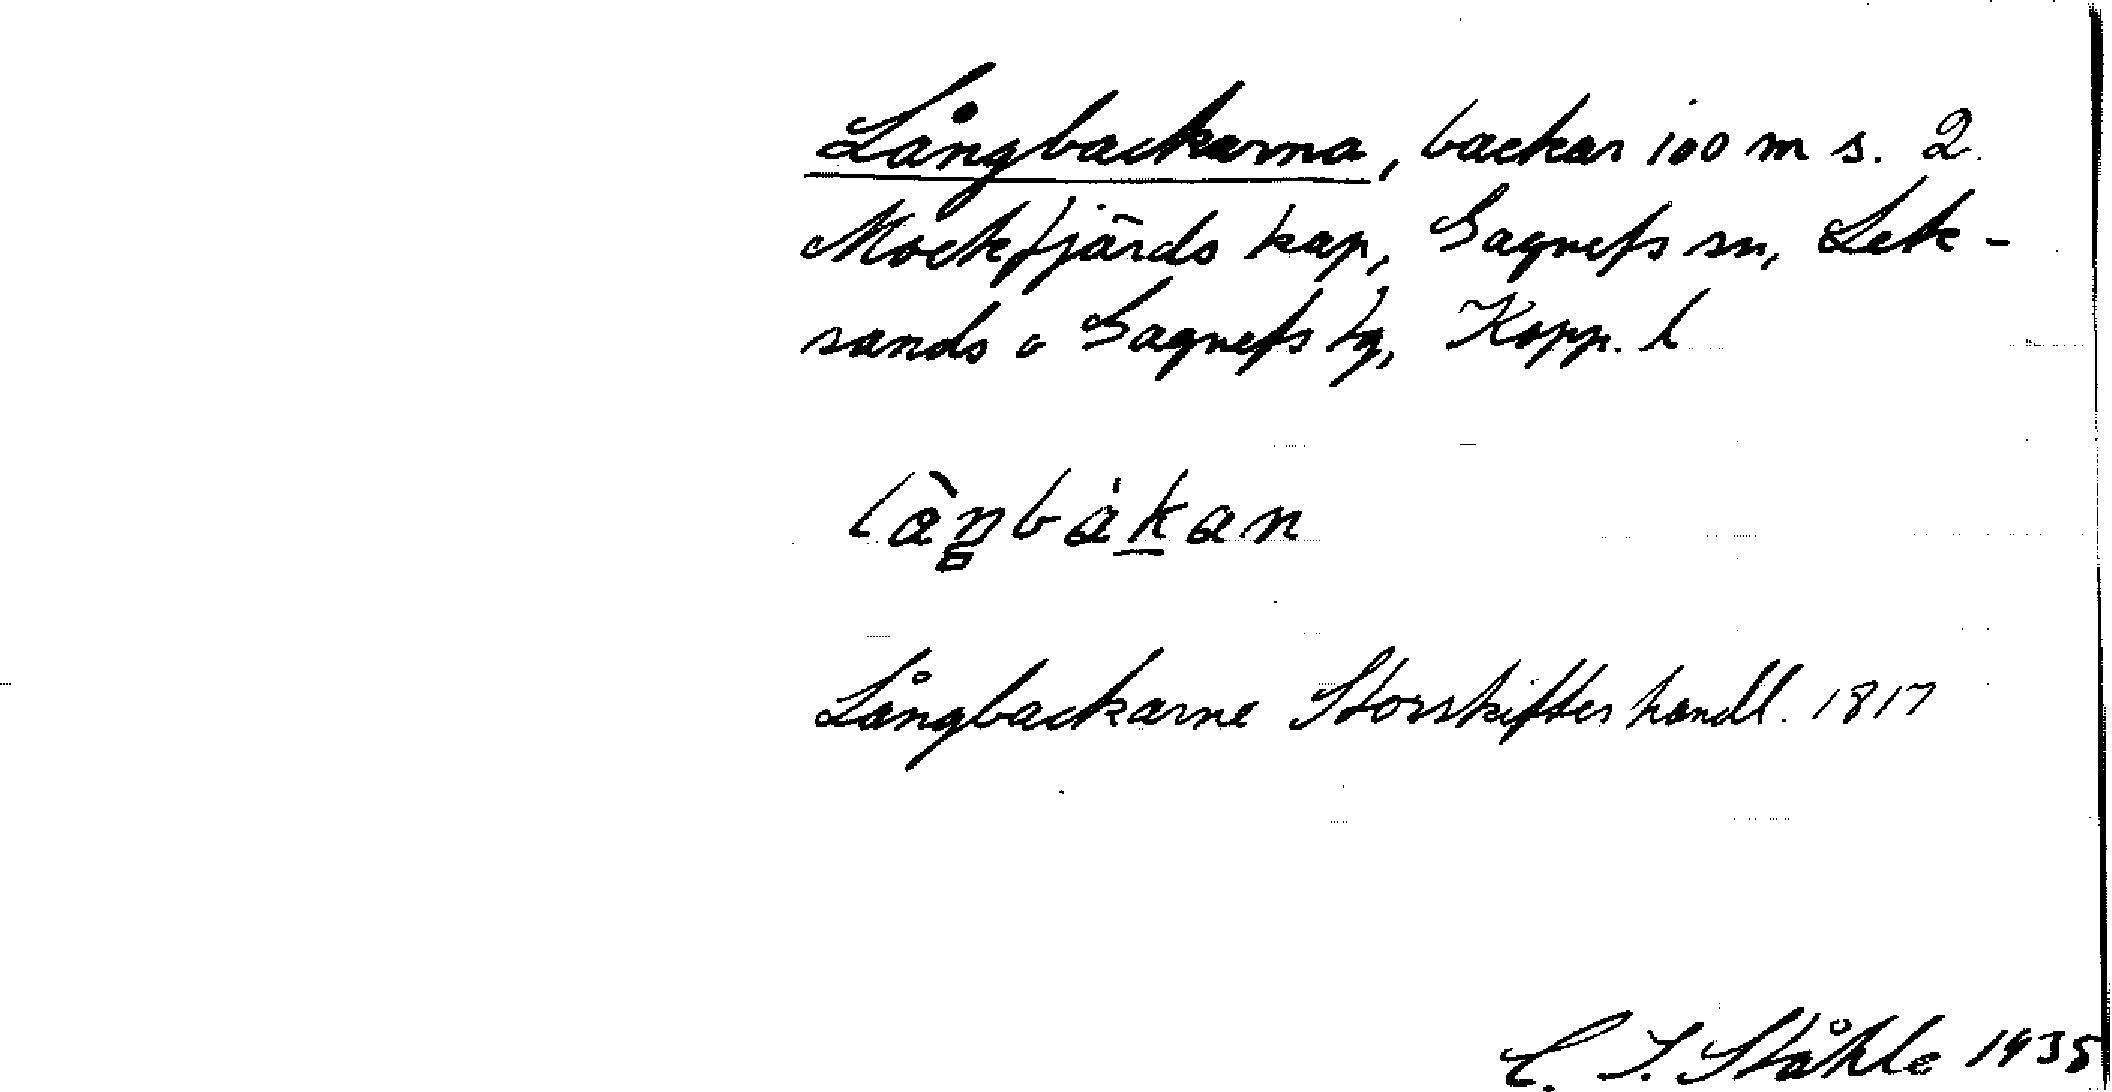 Långbackarna, backar 100 m s. 2.
Mockfjärds kap, Gagnefs sn, Lek-
sands o Gagnefs tg, Kopp. l
làŋbákan
Långbackarne Storskifteshandl. 1817
C. I. Ståhle 1935